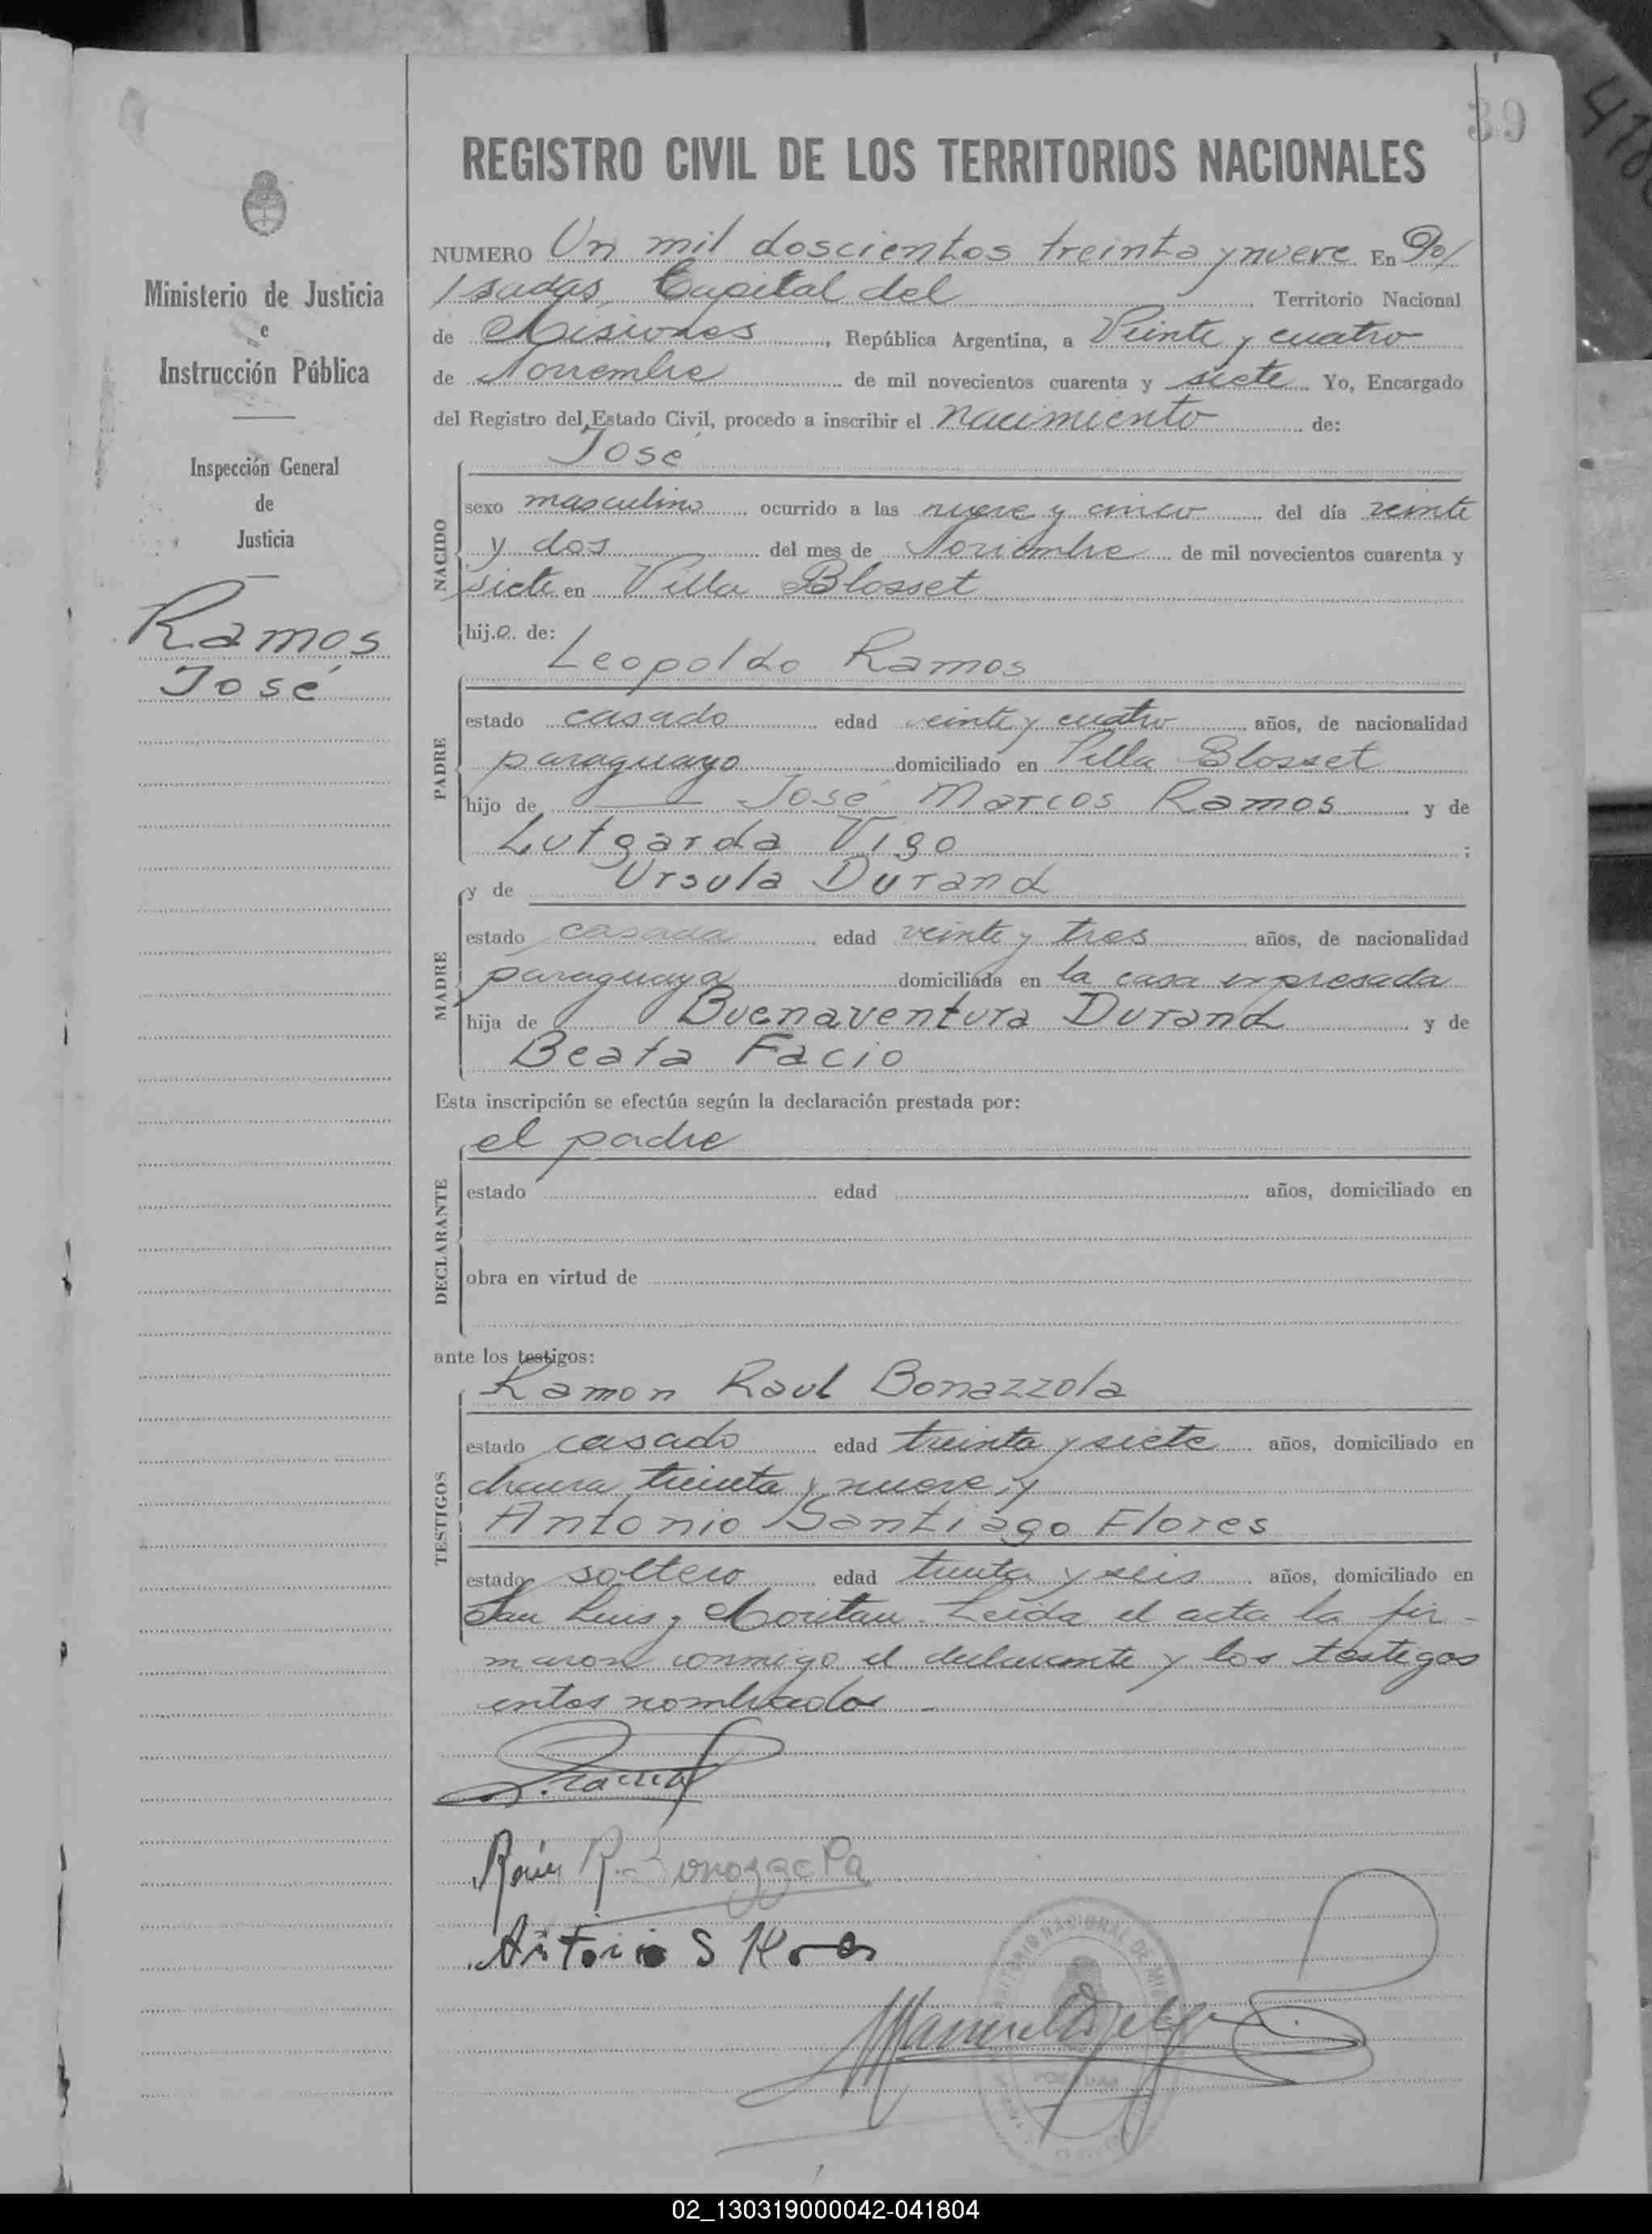 39
REGISTRO CIVIL DE LOS TERRITORIOS NACIONALES
Ministerio de Justicia
e
Instrucción Pública
Inspección General
de
Justicia
Ramos
José
NUMERO Un mil doscientos treinta y nueve En Po/
/sadas, Capital del Territorio Nacional
de Misiones, República Argentina, a Veinte y cuatro
de Noviembre de mil novecientos cuarenta y siete Yo, Encargado
del Registro del Estado Civil, procedo a inscribir el nacimiento de:
NACIDO
José
sexo masculino ocurrido a las nueve y cinco del día veinte
y dos del mes de Noviembre de mil novecientos cuarenta y
siete en Villa Blosset
hijo de:
PADRE
Leopoldo Ramos
estado casado edad veinte y cuatro años, de nacionalidad
paraguayo domiciliado en Villa Blosset
hijo de José Marcos Ramos y de
Lutgarda Vigo ;
MADRE
y de Ursula Durand
estado casada edad veinte y tres años, de nacionalidad
paraguaya domiciliada en la casa expresada
hija de Buenaventura Durand y de
Beata Facio
Esta inscripción se efectúa según la declaración prestada por:
DECLARANTE
el padre
estado edad años, domiciliado en
obra en virtud de
ante los testigos:
TESTIGOS
Ramon Raul Bonazzola
estado casado edad treinta y siete años, domiciliado en
chacra treinta y nueve y
Antonio Santiago Flores
estado soltero edad treinta y seis años, domiciliado en
San Luis y Leida el acta la fir-
maron conmigo el declarante y los testigos
antes nombrados
R. Bonazzola
Antonio S Flores
POSADAS
02_130319000042-041804